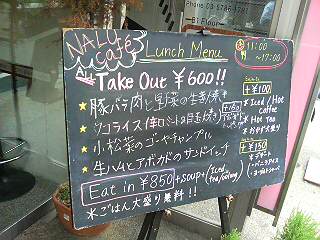 Phone 03-5786-
B1 Floor
NALU Café
Lunch Menu
11:00
~17:00
All Take Out ¥600!!
★豚バラ肉と野菜の生姜焼き
★タコライス(辛口ミート&目玉焼き)
★小松菜のゴーヤチャンプル
★生ハムとアボカドのサンドイッチ
Eat in ¥850 +soup+(Iced tea/oolong)
※ごはん大盛り無料!!
+¥100
・Iced / Hot coffee
・Hot Tea
+¥150